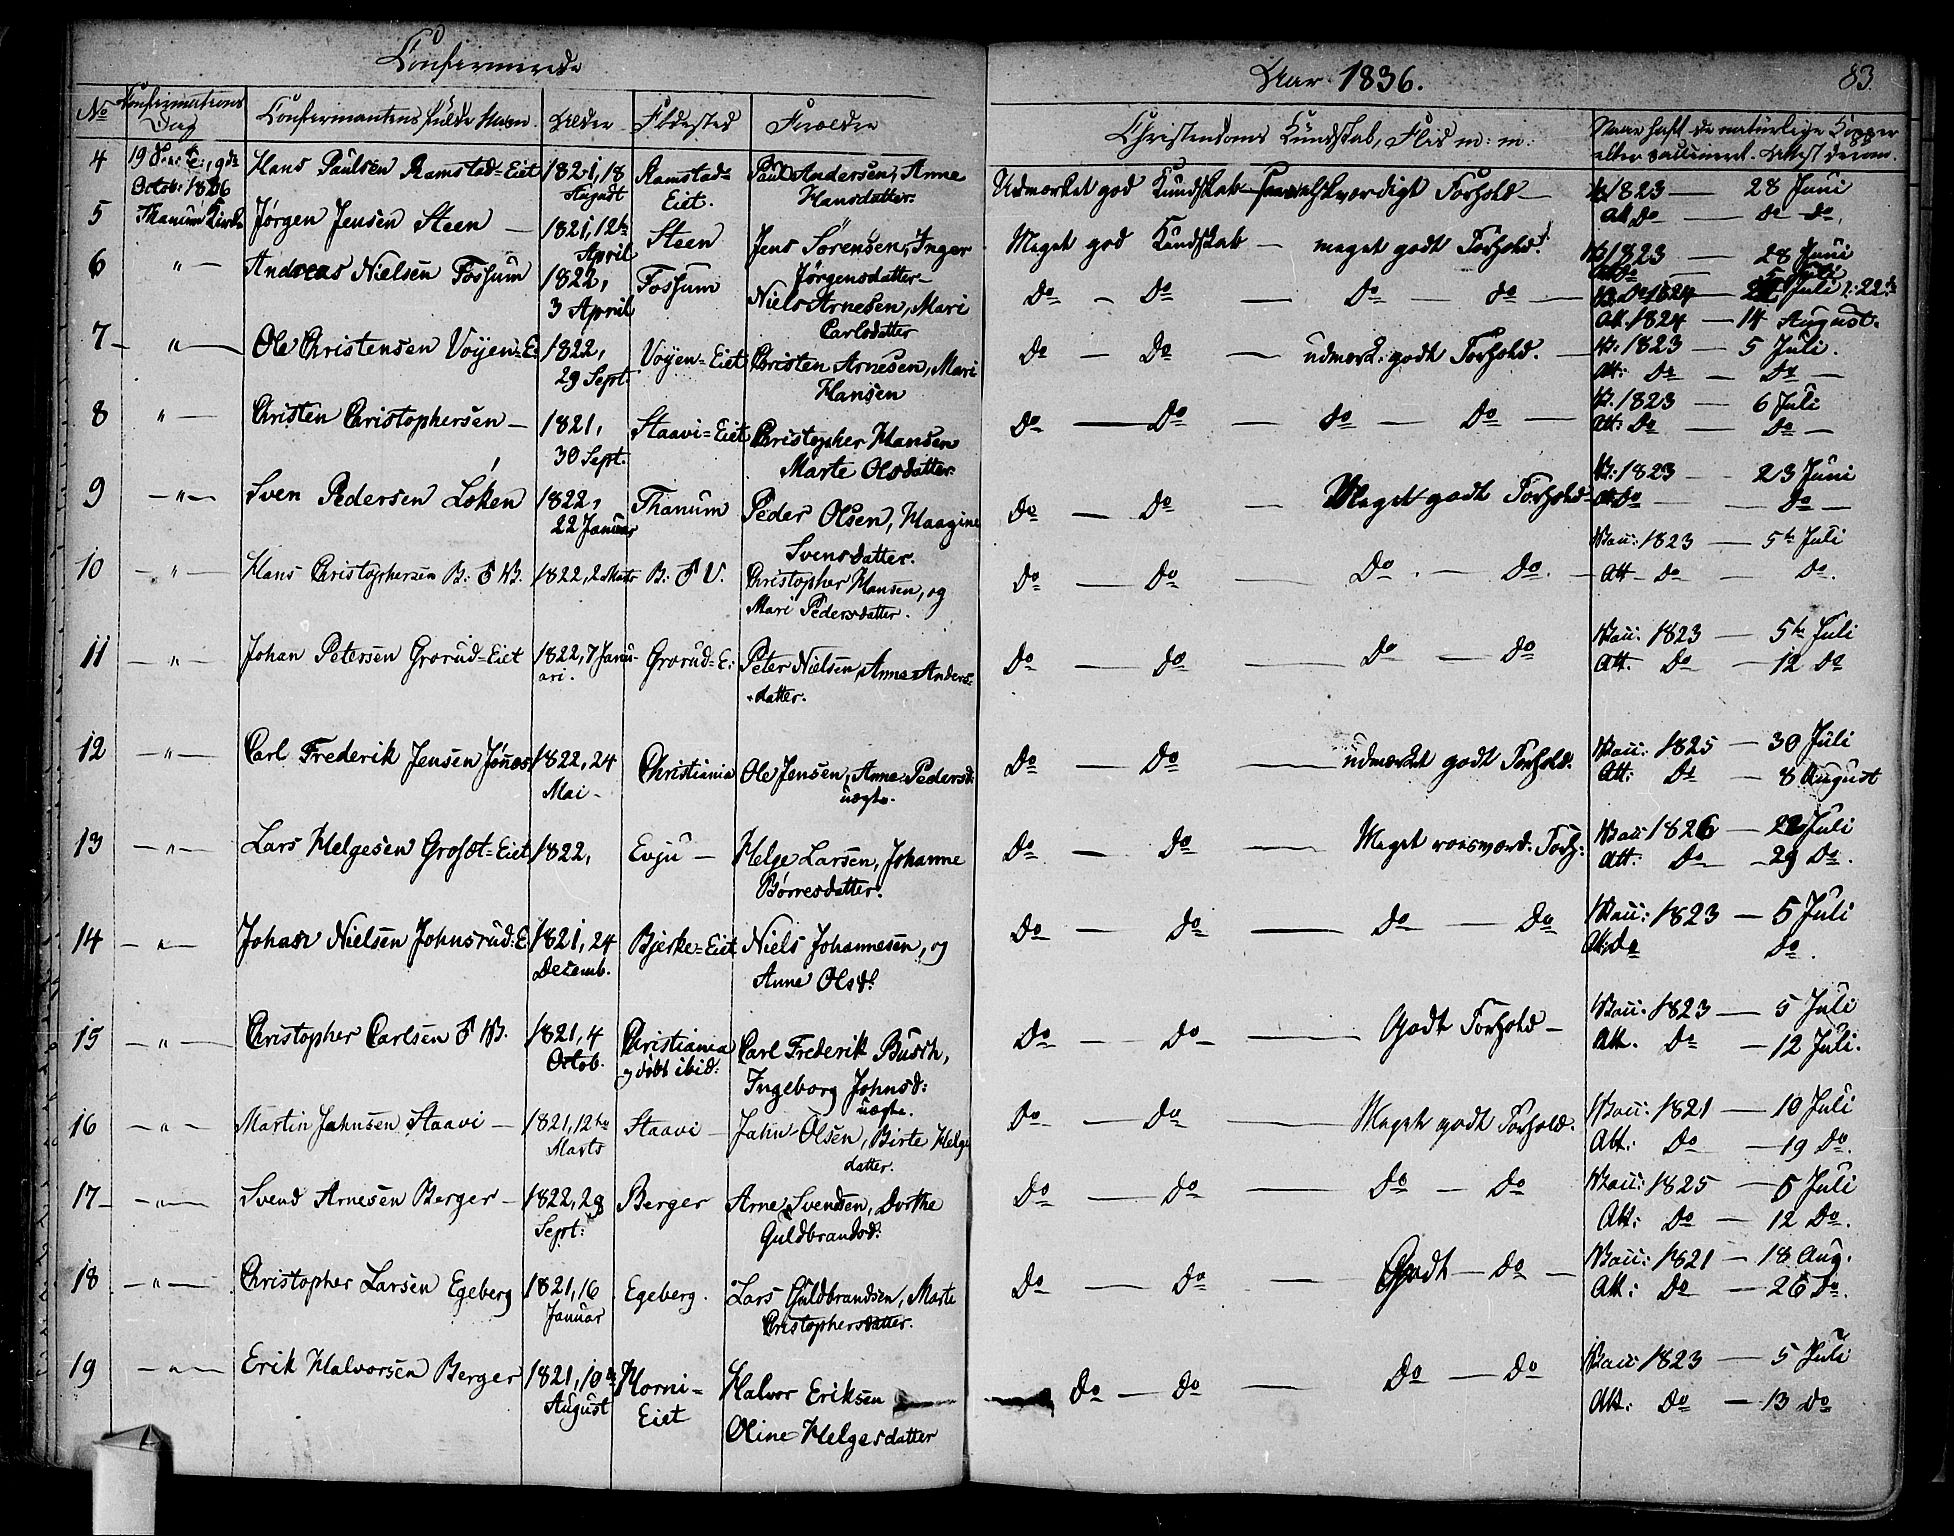 Confirmerede
Aar 1836.
83.
No
Confirmations Dag
Confirmantens fulde Navn.
Alder
Fødested
Forældre
Christendoms Kundskab, Flid m: m:
Naar havt de natürlige Kopper
eller vaccineret. Attest derom.
4
19de
Octob: 1836
Thanum Kirke
Hans Paulsen Ramstad=Eiet
1821, 18
August
Ramstad=
Eiet.
Paul Andersen, Anne
Hansdatter.
Udmærket god Kundskab
Forhold —
1823 — 28 Juni
Att Do — do do.
5
Jørgen Jensen Steen —
1821, 12te
April
Steen
Jens Sørensen, Inger
Jørgensdatter —
Meget god Kundskab — meget godt Forhold.
1823 — 28 Juni
5 Juli
6
" —
Andreas Nielsen Fossum
1822,
3 April
Fossum
Niels Arnesen, Mari
Carlsdatter
Do — Do — Do — do —
1824 — Juli
Att. 1824 — 14 August.
7 —
" —
Ole Christensen Voyen=E.
1822,
29 Sept.
Voyen=Eiet
Christen Arnesen, Mari
Hansen
Do — Do — udmærk: godt Forhold. —
1823 — 5 Juli.
Att: Do — Do —
8
" —
Christen Christophersen —
1821,
30 Sept.
Staavi=Eiet
Christopher Hansen
Marte Olsdatter.
Do — Do — do — Do —
1823 — 6 Juli
Att: Do — Do —
9
— " —
Sven Pedersen Løken
1822,
22 Januar
Thanum
Peder Olsen, Maagine
Svensdatter.
Do — Do — Meget godt Forhold —
1823 — 23 Juni
Att Do — Do —
10
— " —
Hans Christophersen B: & V.
1822, 2 Marts
B: & V.
Christopher Hansen, og
Mari Pedersdatter.
Do — Do — Do — Do. —
Vacc: 1823 — 5te Juli
Att — Do — Do.
11
— " —
Johan Petersen Grorud=Eiet
1822, 7 Janu-
ari.
Grorud=E:
Peter Nielsen, Anne Anders=
datter.
Do — Do — Do — Do
Vacc: 1823 — 5te Juli
Att. Do — 12 Do
12
— " —
Carl Frederik Jensen
1822, 24
Mai —
Christiania
Ole Jensen, Anne Pedersd:
uægte.
Do — Do — udmærket godt Forhold.
Vacc: 1825 — 30 Juli
Att: Do — 8 August
13
— " —
Lars Helgesen =Eiet
1822,
Evju —
Helge Larsen, Johanne
Børresdatter.
Do — Do — Meget roesværd: Forh:
Vacc: 1826 — Juli
Att: Do — 29 Do.
14
— " —
Johan Nielsen Johnsrud:E
1821, 24
Decemb.
Bjerke=Eiet
Niels Johannesen, og
Anne Olsd:
Do — Do — Do — Do
Vacc: 1823 — 5 Juli
Att: do Do.
15
— " —
Christopher Carlsen & V.
1821, 4
Octob.
Christiania
døbt ibid:
Carl Frederik Busch,
Ingeborg Johnsd:
uægte.
Do — Do — Godt Forhold —
Vacc. 1823 — 5 Juli
Att. Do — 12 Juli.
16
— " —
Martin Jahnsen Staavi —
1821, 12te
Marts
Staavi —
Jahn Olsen, Birte Helge
datter.
Do — Do — Meget godt Forhold.
Vacc: 1821 — 10 Juli
Att: Do — 19 Do.
17 —
— " —
Svend Arnesen Berger —
1822, 28
Sept:
Berger
Arne Svendsen, Dorthe
Guldbrandsd:
Do — Do — Do — Do
Vacc: 1825 — 5 Juli
Att: Do — 12 Do.
18
— " —
Christopher Larsen Egeberg
1821, 16
Januar
Egeberg.
Lars Guldbrandsen, Marte
Christophersdatter.
Do — Do — Godt — Do —
Vacc: 1821 — 18 Aug.
Att: Do — 26 Do.
19
— " —
Erik Halvorsen Berger
1821, 10de
August
Horni=
Eiet
Halvor Eriksen
Oline Helgesdatter
Do — Do — Do — Do
Vacc: 1823 — 5 Juli
Att: Do — 13 Do